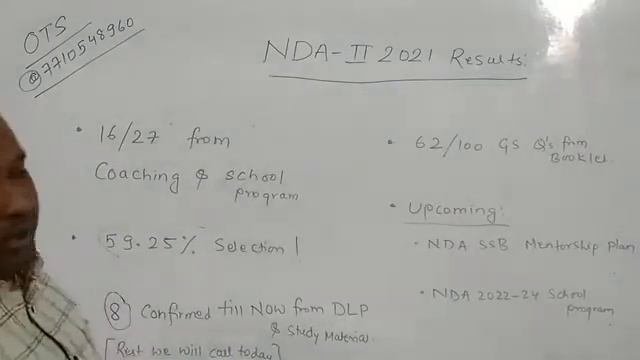 OTS
@7710548960
NDA-II 2021 Results:
• 16/27 from
Coaching & school
program
• 59.25% Selection!
⑧ Confirmed till NOW from DLP
& Study Material.
[Rest we will call today]
• 62/100 GS Q's from
Booklet.
• Upcoming:
• NDA SSB Mentorship Plan
• NDA 2022-24 School
program